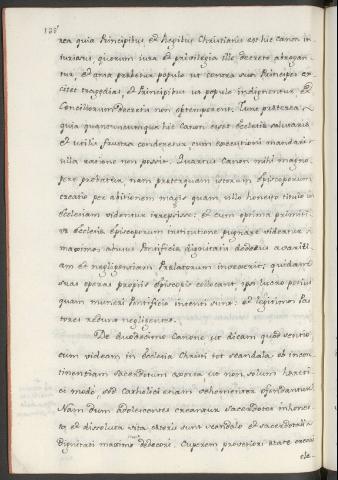 rea quia Principibus et Regibus Christianis est hic canon in
iurious, quorum iura et privilegia illo decreto abrogan
tur, et ansa praebetur populo ut contra suos Principes ex
citet tragoedias, et Principibus ut populo indignentur, et
Conciliorum decretis non obtemperent. Tum praeterea
quia quantumcumque hic Canon esset Ecclesiae salutaris
et utilis frustra conderetur cum executioni mandari
ulla ratione non possit. Quartus Canon mihi magno
pere probatur, nam praeterquam istorum Episcoporum
creatio per ambitionem magis quam ullo honesto titulo in
Ecclesiam videntur irrepsisse: et cum optima primiti
va Ecclesia Episcoporum institutione pugnare videatur
maximo, abusus Pontificiae dignitatis dedecus avariti
am et negligentiam Praelatorum invexerit; quidam
suas operas propriis Episcopis collocant, ipsi lucro potius
quam muneri Pontificio intenti sunt: et legitimos Pas
tores reddunt negligentes.
De duodecimo Canone ut dicam quod sentio
cum videam in Ecclesia Christi tot scandala ob incon
tinentiam sacerdotum exorta, ut non solum haereti
ci modo, sed Catholici etiam vehementer offendantur
Nam dum adolescentes creantur sacerdotes inhones
ta et dissoluta vita, caeteris sunt scandalo et sacerdotali
dignitati maximo dedecori. Cuperem provectiori aetate
cle